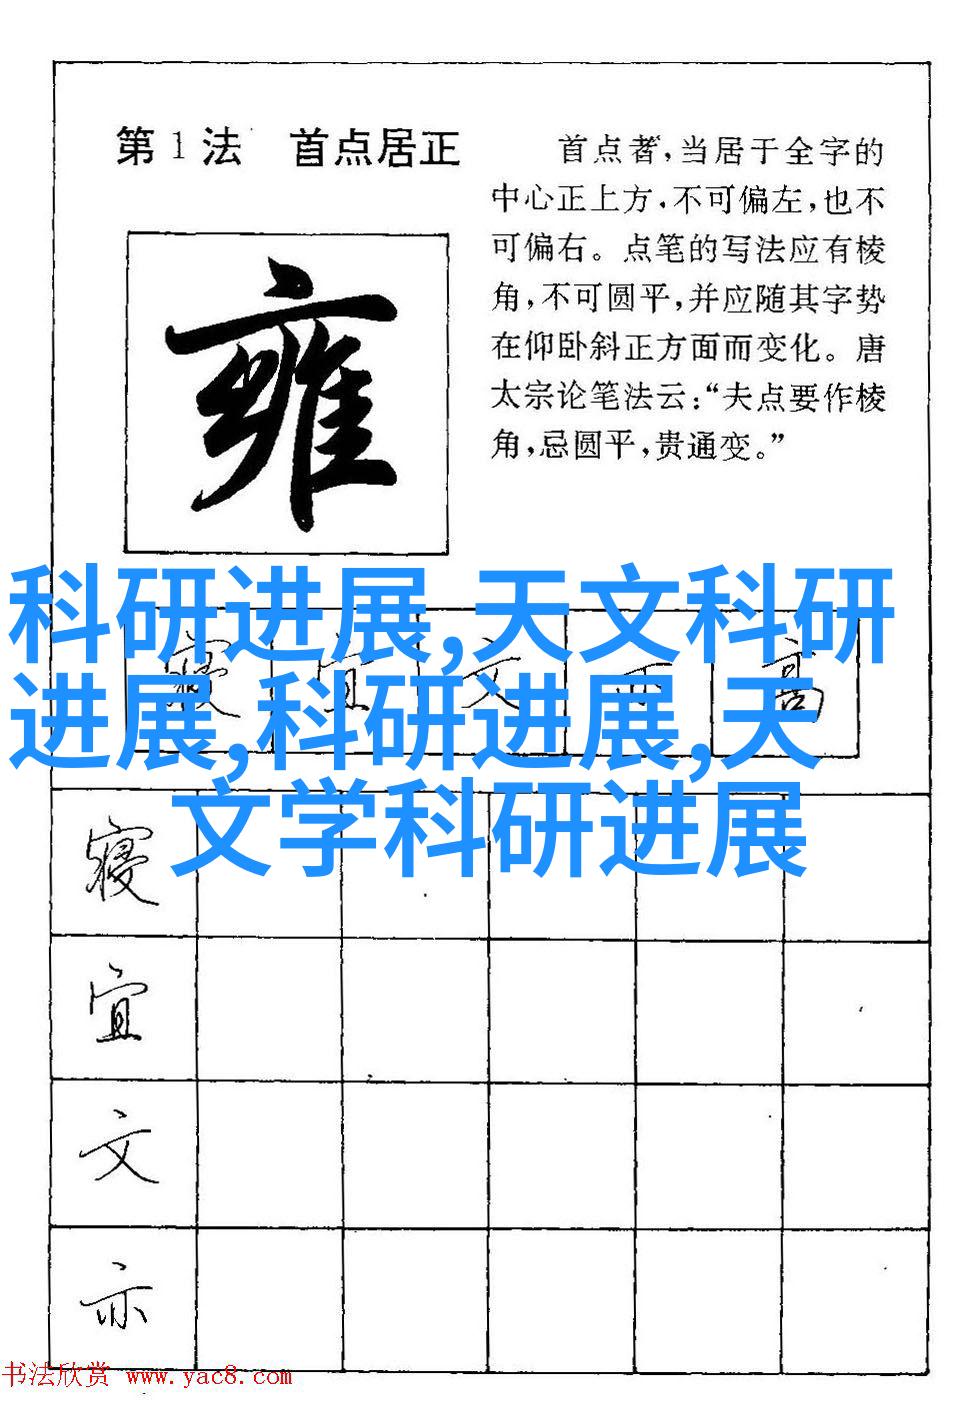 第1法 首点居正
首点者，当居于全字的
中心正上方，不可偏左，也不
可偏右。点笔的写法应有棱
角，不可圆平，并应随其字势
在仰卧斜正方面而变化。唐
太宗论笔法云：“夫点要作棱
角，忌圆平，贵通变。”
雍
科研进展,天文科研
进展,科研进展,天
文学科研进展
寝 宜 文 亦 高
寝
宜
文
亦
书法欣赏 www.yac8.com